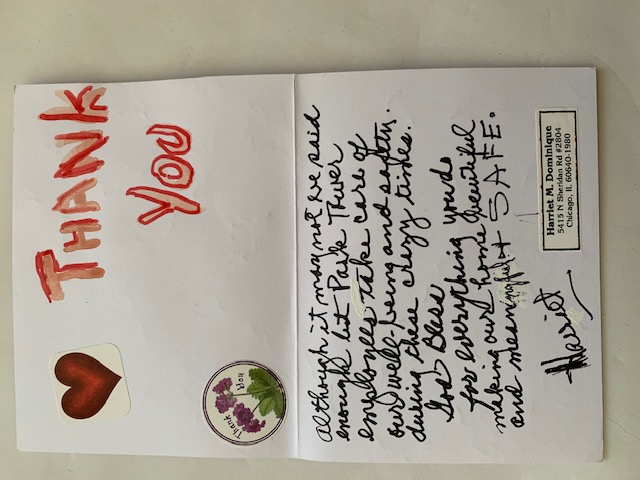 THANK
YOU
Thank You
Although it may not be said
enough but Park Tower
employees take care of
our well-being and safety.
during these crazy times.
God Bless
for everything you do
making our home beautiful
and meaningful + SAFE.
Harriet
Harriet M. Dominique
5415 N Sheridan Rd #2804
Chicago, IL 60640-1980